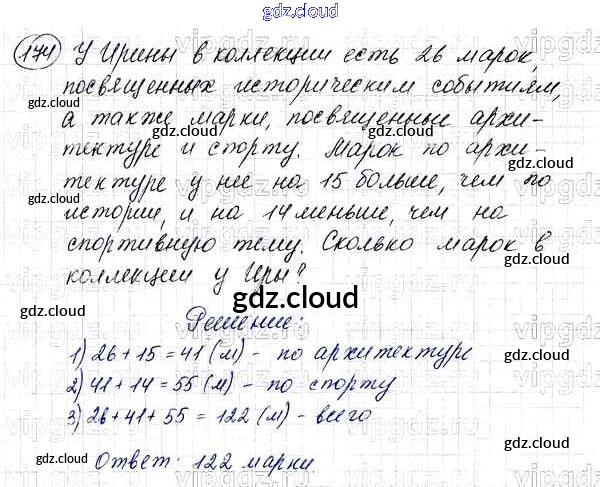 gdz.cloud
174 У Ирины в коллекции есть 26 марок,
посвященных историческим событиям,
а также марки, посвященные архи-
тектуре и спорту. Марок по архи-
тектуре у нее на 15 больше, чем по
истории, и на 14 меньше, чем на
спортивную тему. Сколько марок в
коллекции у Иры?
gdz.cloud
Решение:
1) 26 + 15 = 41 (м) - по архитектуре
2) 41 + 14 = 55 (м) - по спорту
3) 26 + 41 + 55 = 122 (м) - всего
Ответ: 122 марки.
gdz.cloud